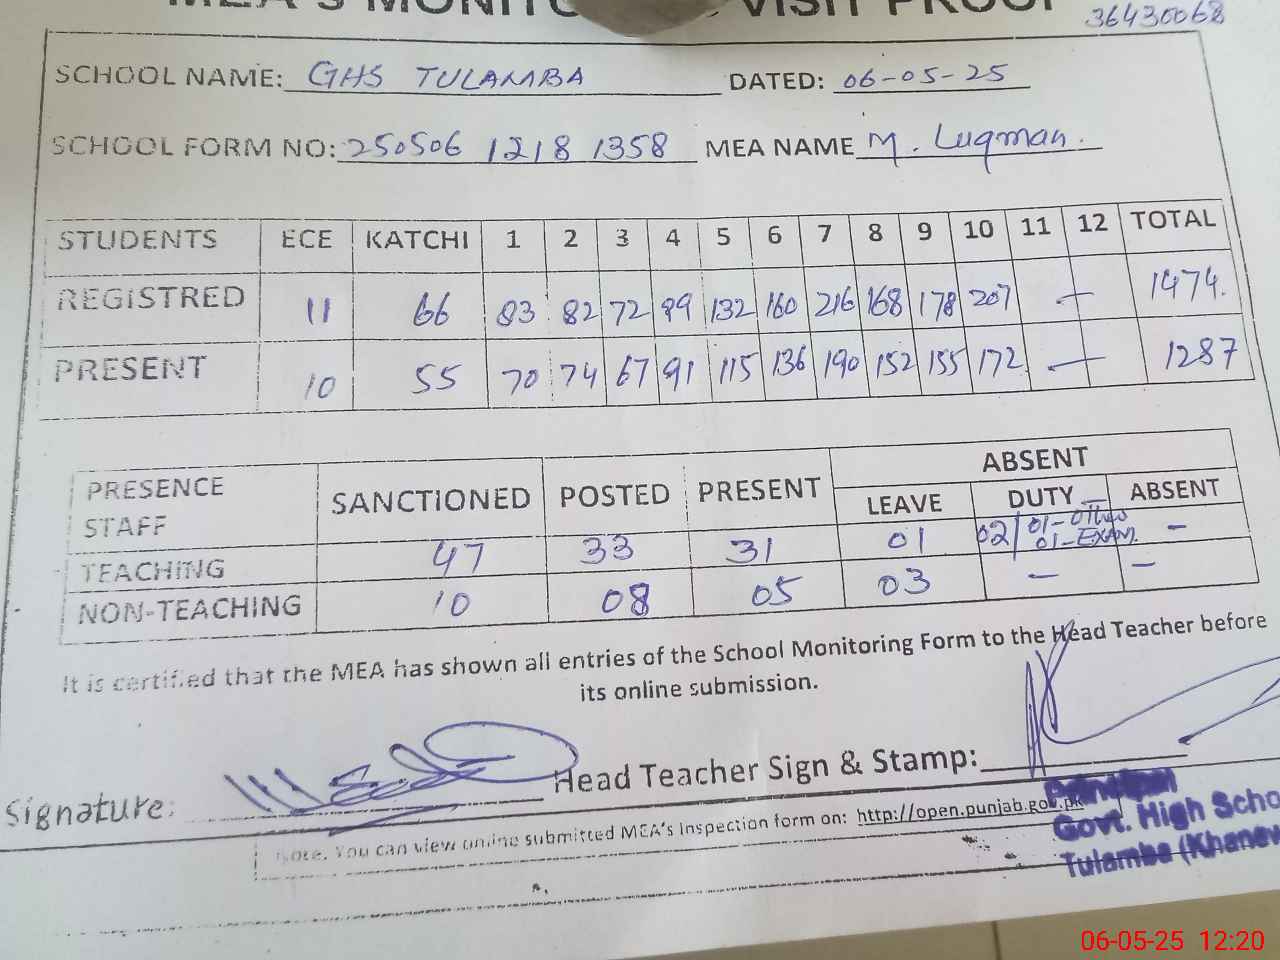 MEA'S MONITO VISIT PROOF
36430068
SCHOOL NAME: GHS TULAMBA DATED: 06-05-25
SCHOOL FORM NO: 250506 1218 1358 MEA NAME M. Luqman.
STUDENTS ECE KATCHI 1 2 3 4 5 6 7 8 9 10 11 12 TOTAL
REGISTRED 11 66 83 82 72 99 132 160 216 168 178 207 — 1474.
PRESENT 10 55 70 74 67 91 115 136 190 152 155 172 — 1287
PRESENCE STAFF SANCTIONED POSTED PRESENT ABSENT
LEAVE DUTY ABSENT
TEACHING 47 33 31 01 02/01-Other 01-EXAM. —
NON-TEACHING 10 08 05 03 — —
It is certified that the MEA has shown all entries of the School Monitoring Form to the Head Teacher before
its online submission.
Signature: Head Teacher Sign & Stamp:
Note. You can view online submitted MEA's Inspection form on: http://open.punjab.gov.pk
Principal
Govt. High Scho
Tulamba (Khanew
06-05-25 12:20